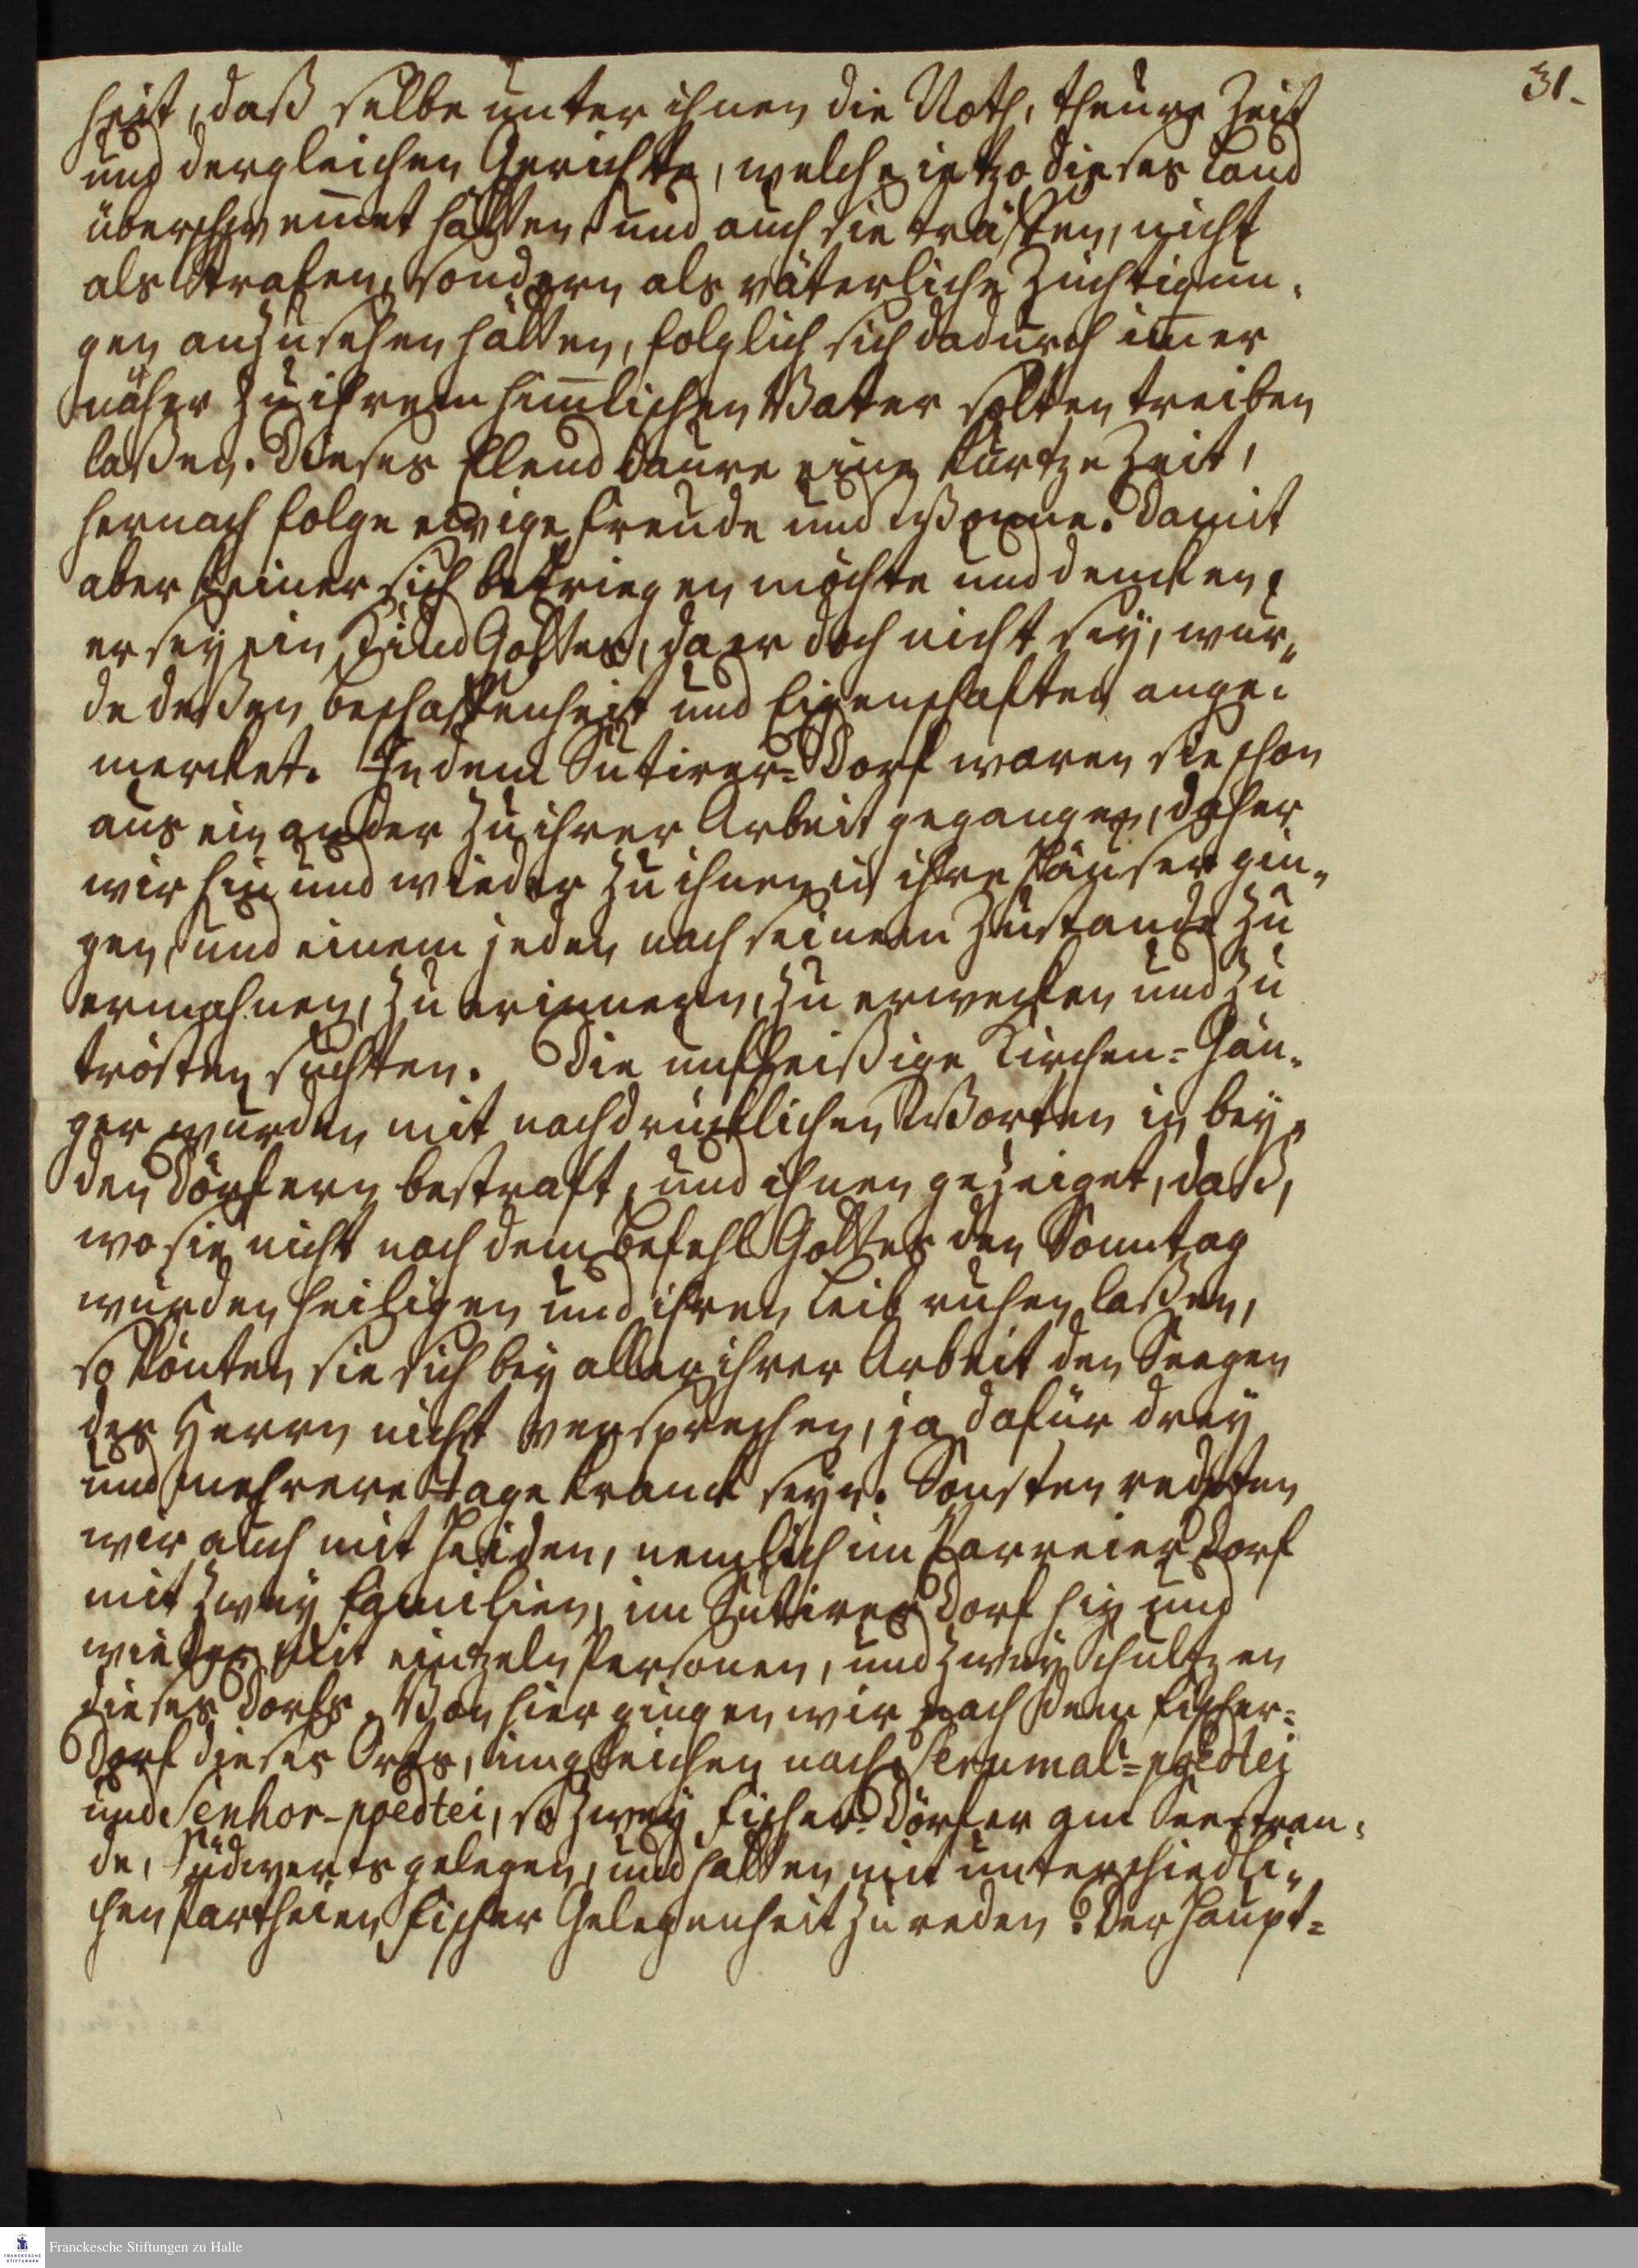 31.
heit, daß selbe unter ihnen die Noth, theure Zeit
und dergleichen Gerichte, welche ietzo dieses Land
überschwem̅et hätten und auch sie träffen, nicht
als Strafen, sondern als väterliche Züchtigun-
gen anzusehen hätten, folglich sich dadurch im̅er
näher zu ihrem him̅lischen Vater solten treiben
laßen. Dieses Elend daure eine kurtze Zeit,
hernach folge ewige Freude und Wonne. Damit
aber keiner sich betriegen möchte und dencken,
er sey ein Kind Gottes, da er doch nicht sey, wur-
de deßen Beschaffenheit und Eigenschaften ange-
mercket. In dem Sutirer-Dorf waren sie schon
aus einander zu ihrer Arbeit gegangen, daher
wir hin und wieder zu ihnen in ihre Häuser gin-
gen, und einem jeden nach seinem Zustande zu
ermahnen, zu erinnern, zu erwecken und zu
trösten suchten. Die unfleißige Kirchen-Gän-
ger wurden mit nachdrücklichen Worten in bey-
den Dörfern bestraft, und ihnen gezeiget, daß,
wo sie nicht nach dem Befehl Gottes den Sonntag
würden heiligen und ihren Leib ruhen laßen,
so könten sie sich bey aller ihrer Arbeit den Seegen
des Herrn nicht versprechen, ja dafür drey
und mehrere Tage kranck seyn. Sonsten redeten
wir auch mit Heiden, nemlich im Parreier Dorf
mit zwey Familien, im Sutirer Dorf hin und
wieder mit eintzeln Personen, und zwey Schultzen
dieses Dorfs. Von hier gingen wir nach dem Fischer-
Dorf dieses Orts, imgleichen nach Perumal-poedtei
und Senhor-poedtei, so zwey Fischer-Dörfer am Seestran-
de, Südwerts gelegen, und hatten mit unterschiedli-
chen Partheien Fischer Gelegenheit zu reden. Der Haupt-
Franckesche Stiftungen zu Halle